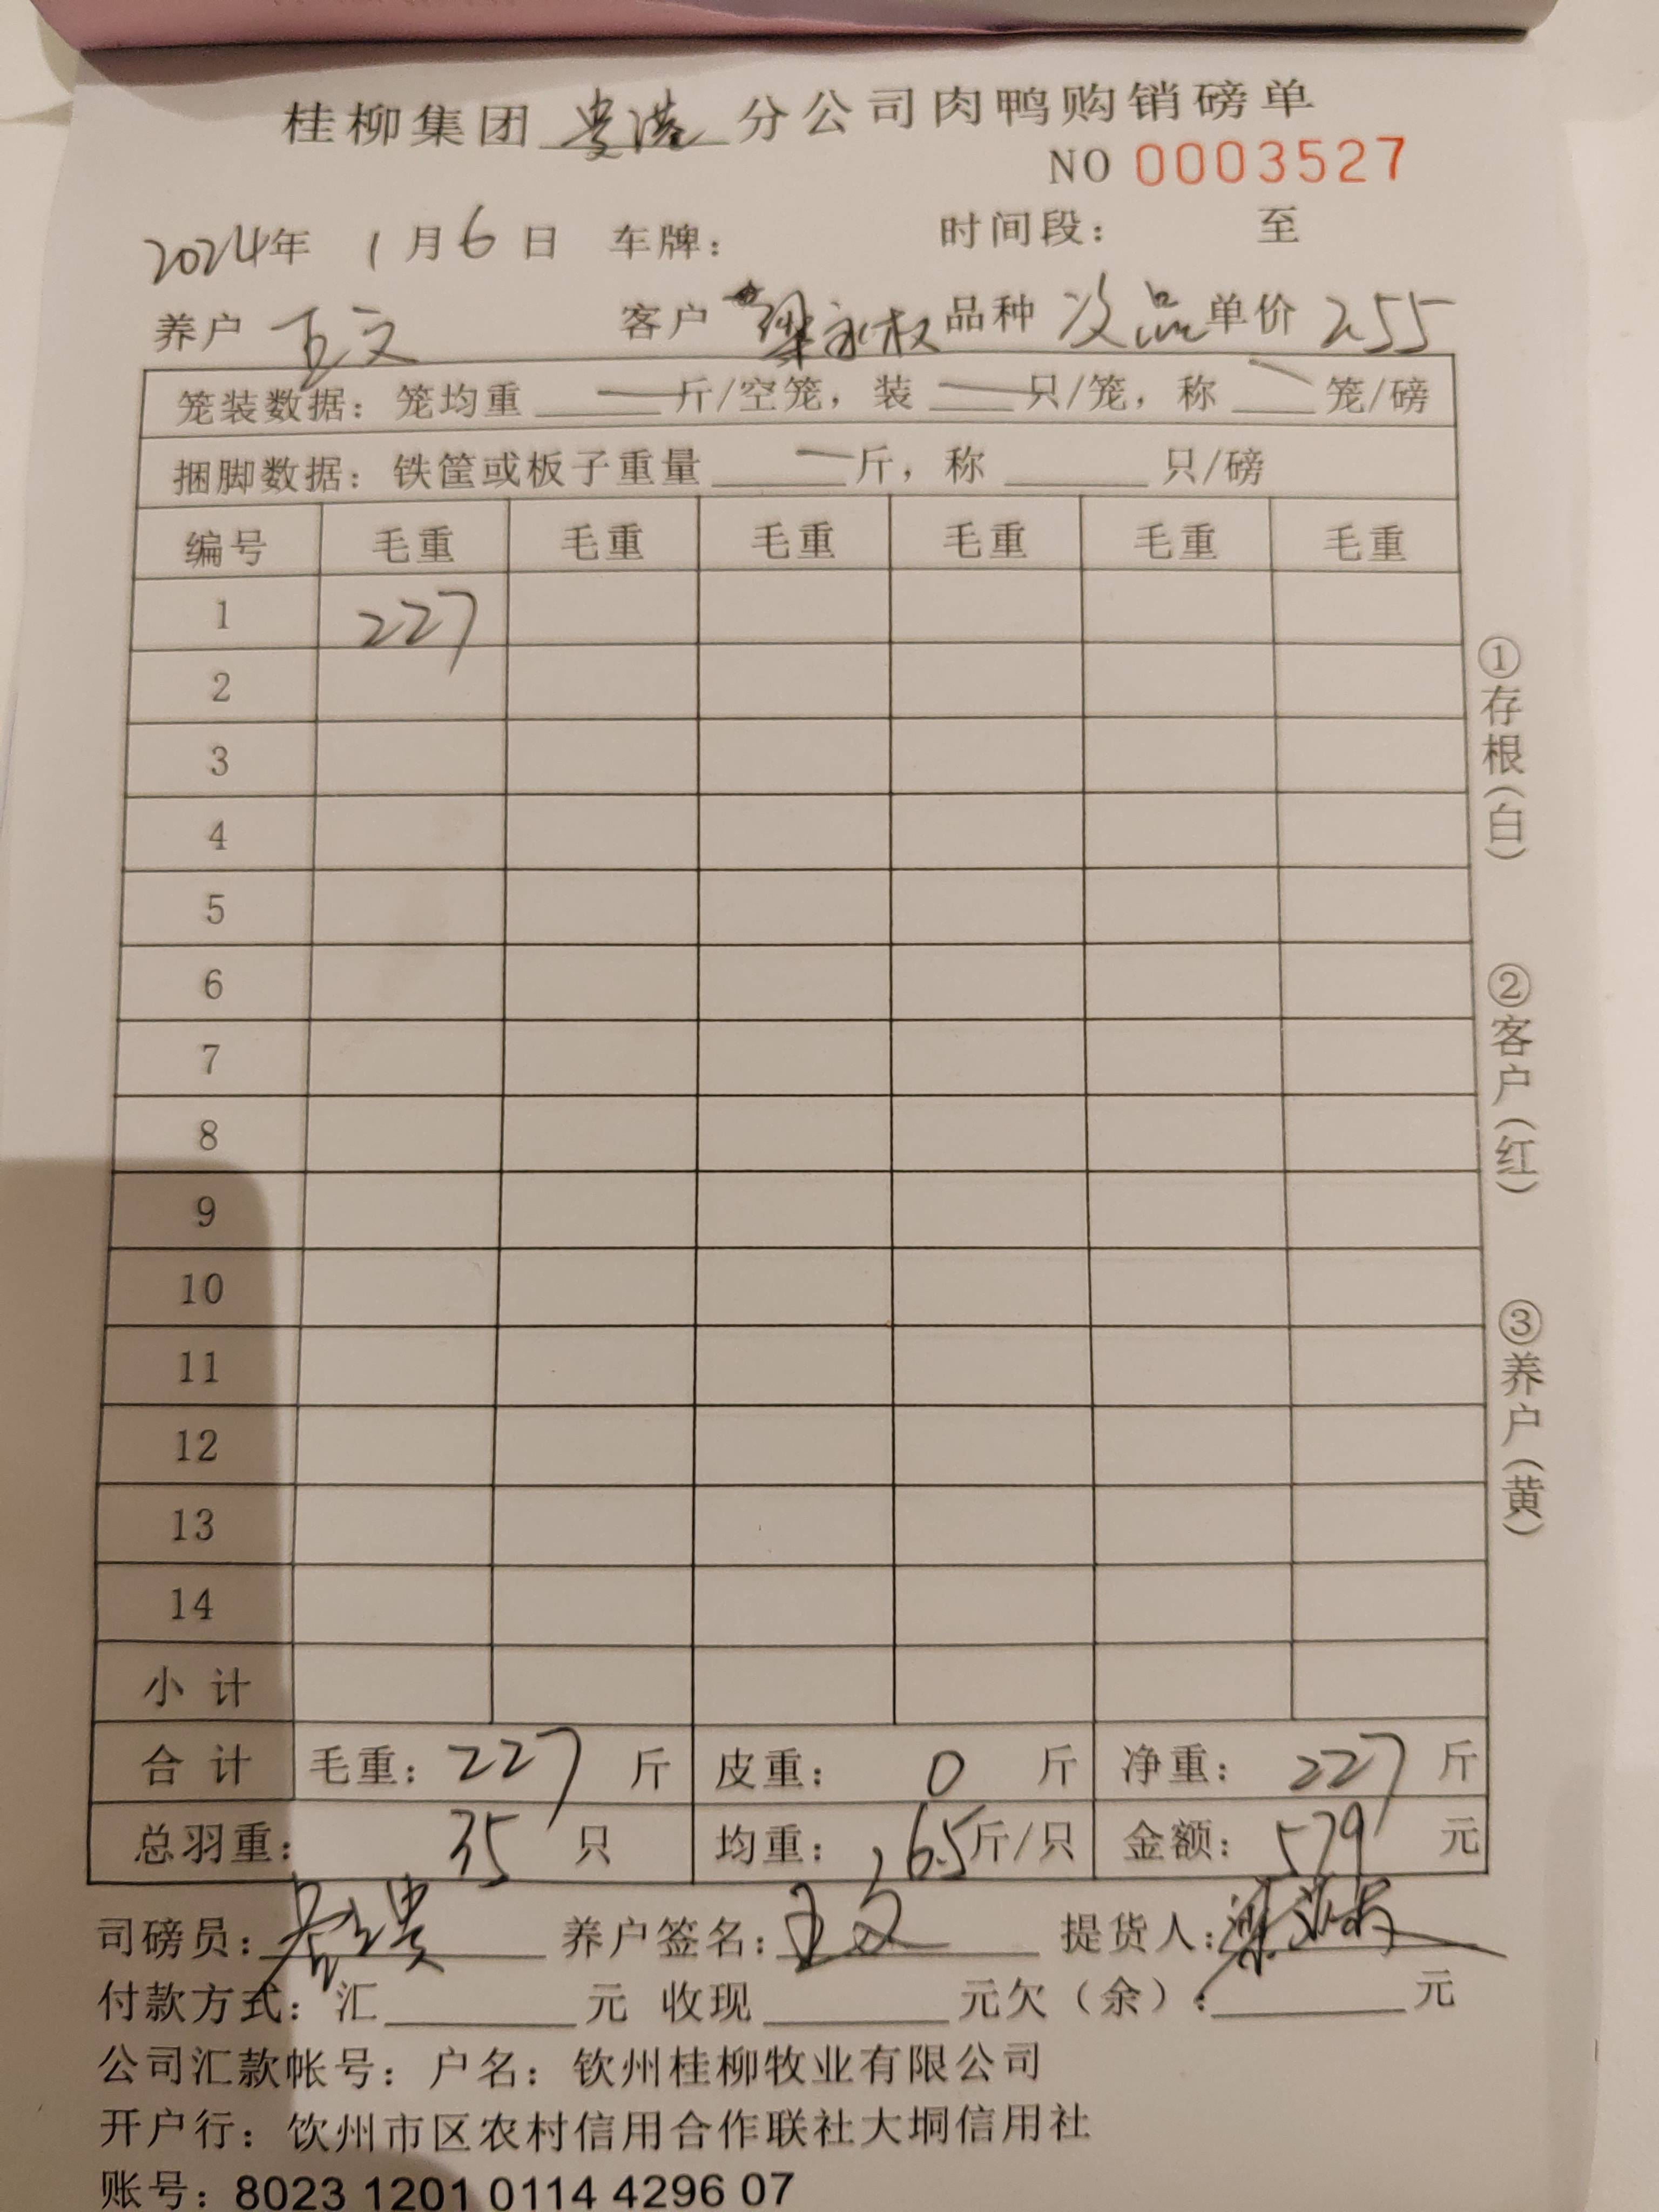 桂柳集团 贵港 分公司肉鸭购销磅单
NO 0003527
2024年 1月6日 车牌： 时间段： 至
养户 王文 客户 梁永权 品种 次品 单价 255
笼装数据：笼均重 斤/空笼，装 只/笼，称 笼/磅
捆脚数据：铁筐或板子重量 斤，称 只/磅
编号 毛重 毛重 毛重 毛重 毛重 毛重
1 227
2
3
4
5
6
7
8
9
10
11
12
13
14
小计
合计 毛重：227 斤 皮重：0 斤 净重：227 斤
总羽重：35 只 均重：6.5斤/只 金额：579 元
司磅员： 养户签名：王文 提货人：
付款方式：汇 元 收现 元欠（余）： 元
公司汇款帐号：户名：钦州桂柳牧业有限公司
开户行：饮州市区农村信用合作联社大垌信用社
账号：8023 1201 0114 4296 07
①存根（白）
②客户（红）
③养户（黄）